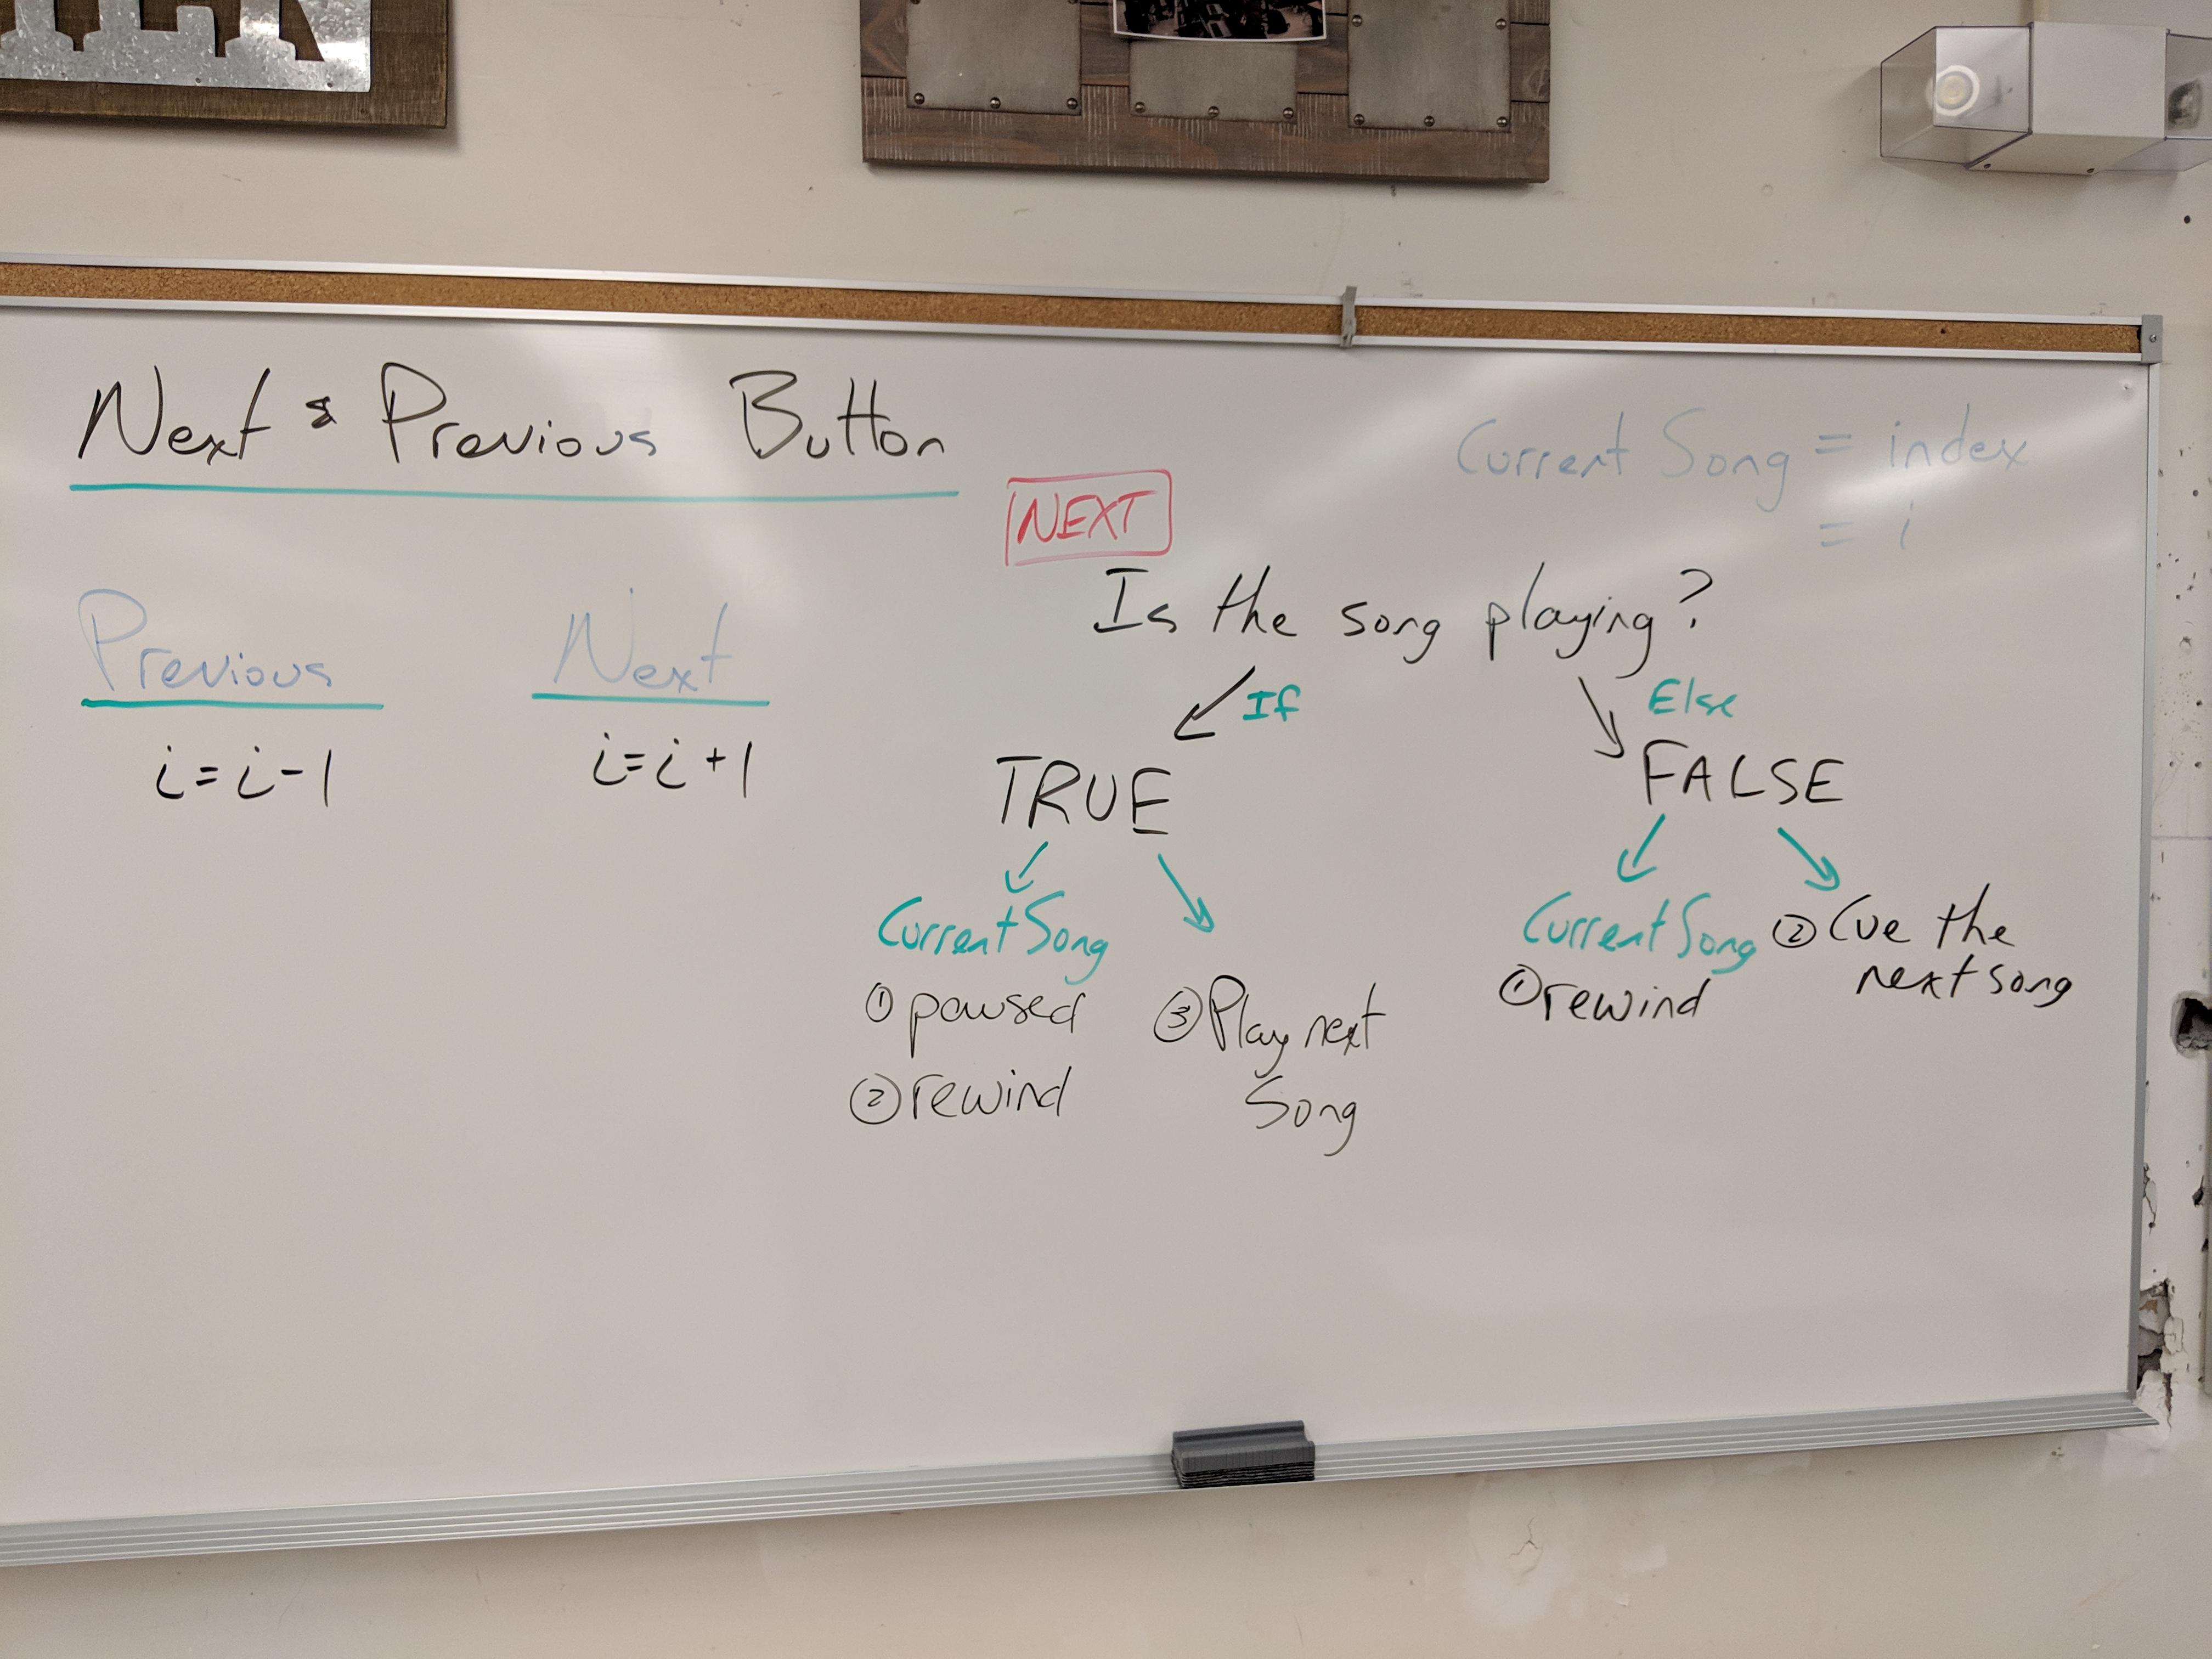 Next & Previous Button
Current Song = index
= i
NEXT
Previous
Next
i = i - 1
i = i + 1
Is the song playing?
If
Else
TRUE
FALSE
Current Song
① paused
② rewind
③ Play next
Song
Current Song
① rewind
② Cue the
next song